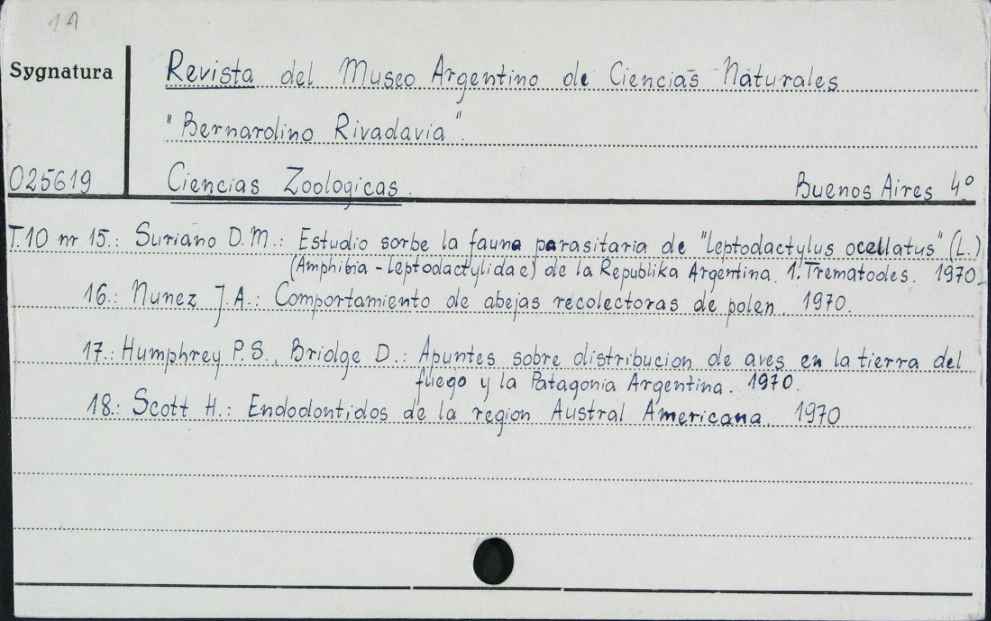 1A
Sygnatura
Revista del Museo Argentino de Ciencias Naturales
"Bernardino Rivadavia".
025619
Ciencias Zoologicas.
Buenos Aires 4º
T.10 nr 15.: Suriano D.M.: Estudio sorbe la fauna parasitaria de "leptodactylus ocellatus" (L.)
(Amphibia - leptodactylidae) de la Republika Argentina. 1. Trematodes. 1970.
16.: Nunez J.A.: Comportamiento de abejas recolectoras de polen. 1970.
17.: Humphrey P.S., Bridge D.: Apuntes sobre distribucion de aves en la tierra del
fuego y la Patagonia Argentina. 1970.
18.: Scott H.: Endodontidos de la region Austral Americana. 1970